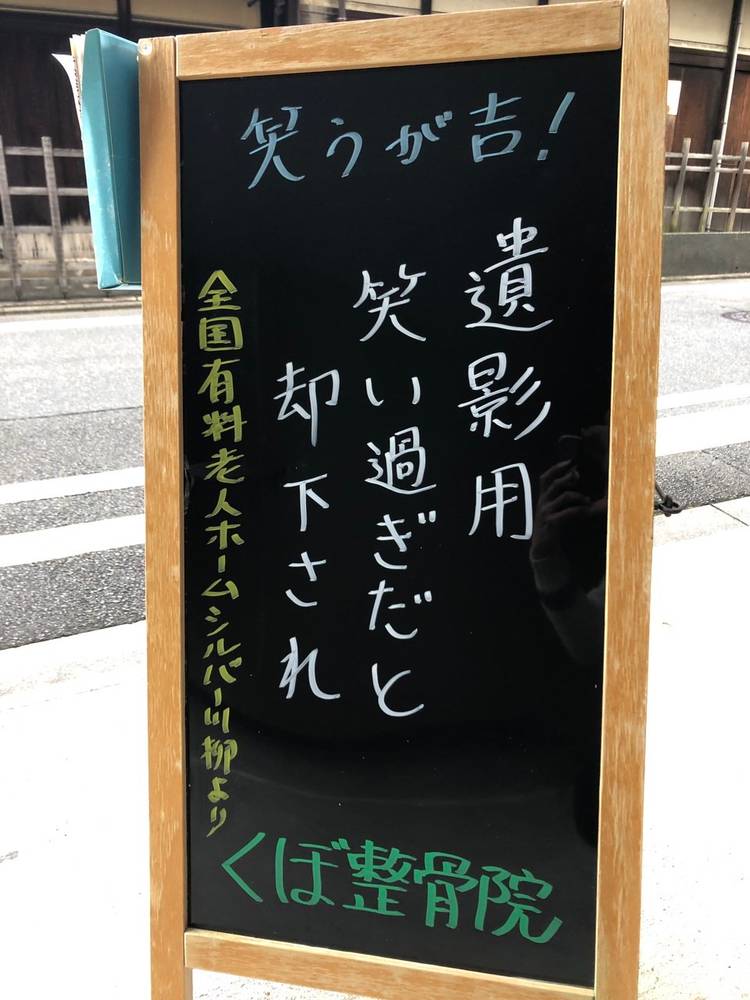 笑うが吉!
遺影用
笑い過ぎだと
却下され
全国有料老人ホームシルバー川柳より
くぼ整骨院